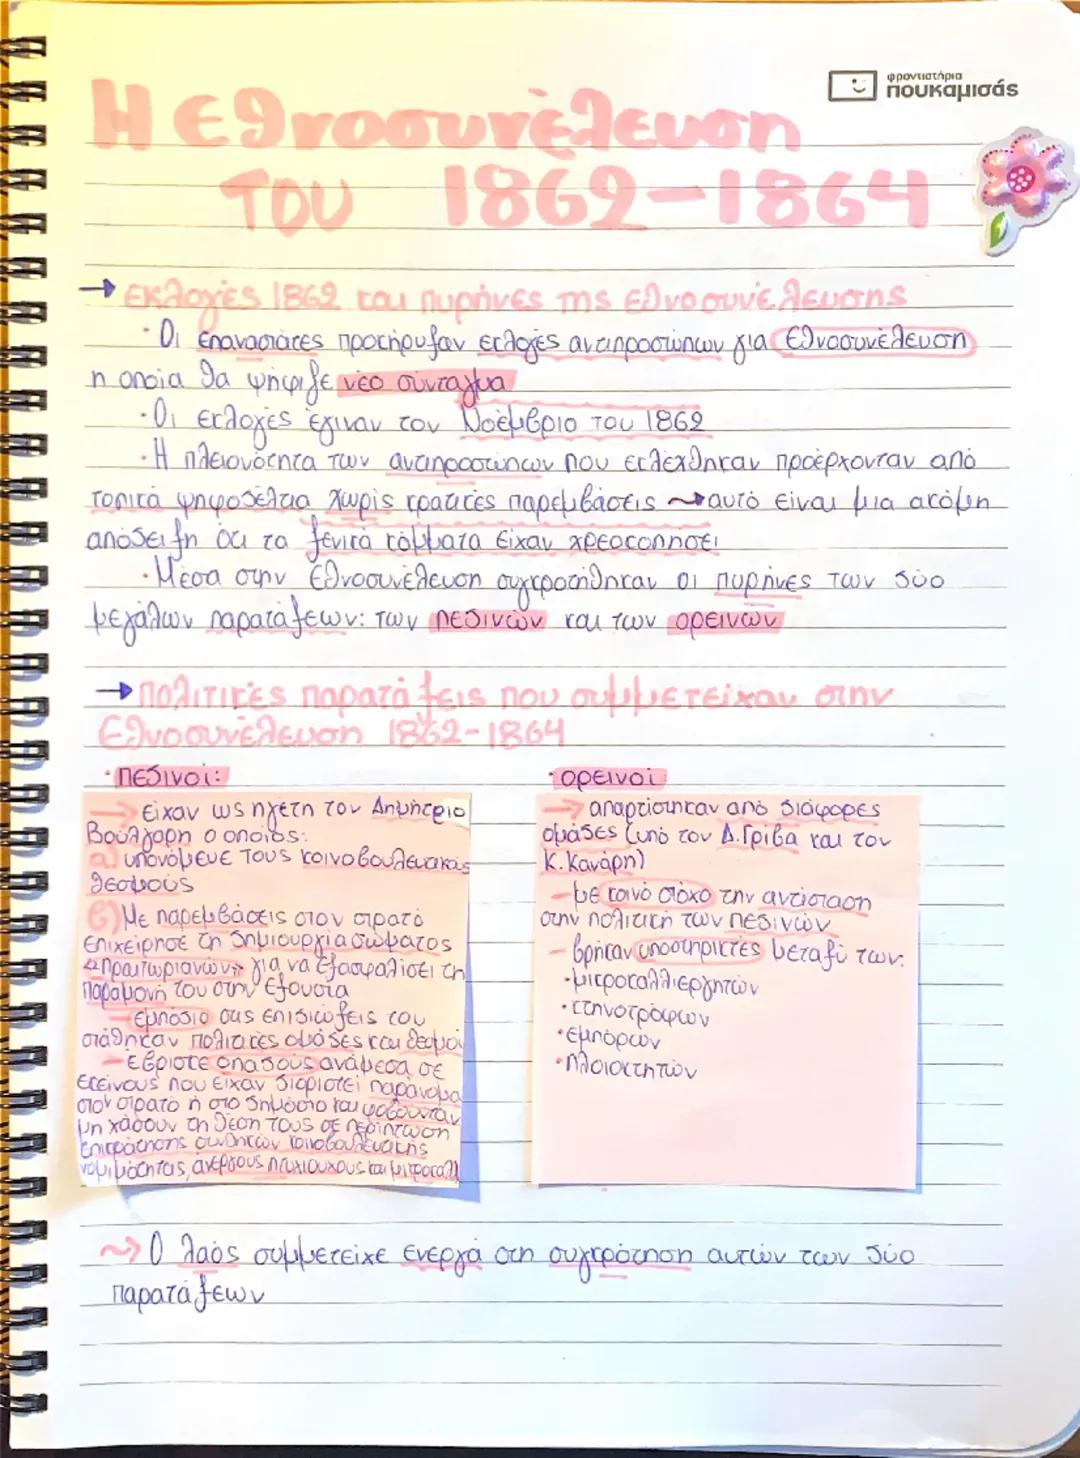 φροντιστήρια
πουκαμισάς
Η εθνοσυνέλευση
του 1862-1864
→ Εκλογές 1862 και πυρήνες της εθνοσυνέλευσης
· Οι επαναστάτες προκήρυξαν εκλογές αντιπροσώπων για Εθνοσυνέλευση
η οποία θα ψήφιζε νέο σύνταγμα
· Οι εκλογές έγιναν τον Νοέμβριο του 1862
· Η πλειονότητα των αντιπροσώπων που εκλέχθηκαν προέρχονταν από
τοπικά ψηφοδέλτια χωρίς κρατικές παρεμβάσεις → αυτό είναι μια ακόμη
απόδειξη ότι τα ξενικά κόμματα είχαν χρεοκοπήσει
· Μέσα στην Εθνοσυνέλευση συγκροτήθηκαν οι πυρήνες των δύο
μεγάλων παρατάξεων: των πεδινών και των ορεινών
→ Πολιτικές παρατάξεις που συμμετείχαν στην
Εθνοσυνέλευση 1862-1864
· πεδινοί:
→ είχαν ως ηγέτη τον Δημήτριο
Βούλγαρη ο οποίος:
α) υπονόμευε τους κοινοβουλευτικούς
θεσμούς
β) Με παρεμβάσεις στον στρατό
επιχείρησε τη δημιουργία σώματος
«πραιτωριανών» για να εξασφαλίσει τη
παραμονή του στην εξουσία
— εμπόδιο στις επιδιώξεις του
στάθηκαν πολιτικές ομάδες και θεσμοί
— έβρισκε οπαδούς ανάμεσα σε
εκείνους που είχαν διοριστεί παράνομα
στον στρατό ή στο δημόσιο και φοβούνταν
μη χάσουν τη θέση τους σε περίπτωση
επικράτησης συνθηκών κοινοβουλευτικής
νομιμότητας, άνεργους πτυχιούχους και μικροκαλλ
· ορεινοί
→ απαρτίστηκαν από διάφορες
ομάδες (υπό τον Δ. Γρίβα και τον
Κ. Κανάρη)
— με κοινό στόχο την αντίσταση
στην πολιτική των πεδινών
— βρήκαν υποστηρικτές μεταξύ των:
· μικροκαλλιεργητών
· κτηνοτρόφων
· εμπόρων
· πλοιοκτητών
~> Ο λαός συμμετείχε ενεργά στη συγκρότηση αυτών των δύο
παρατάξεων